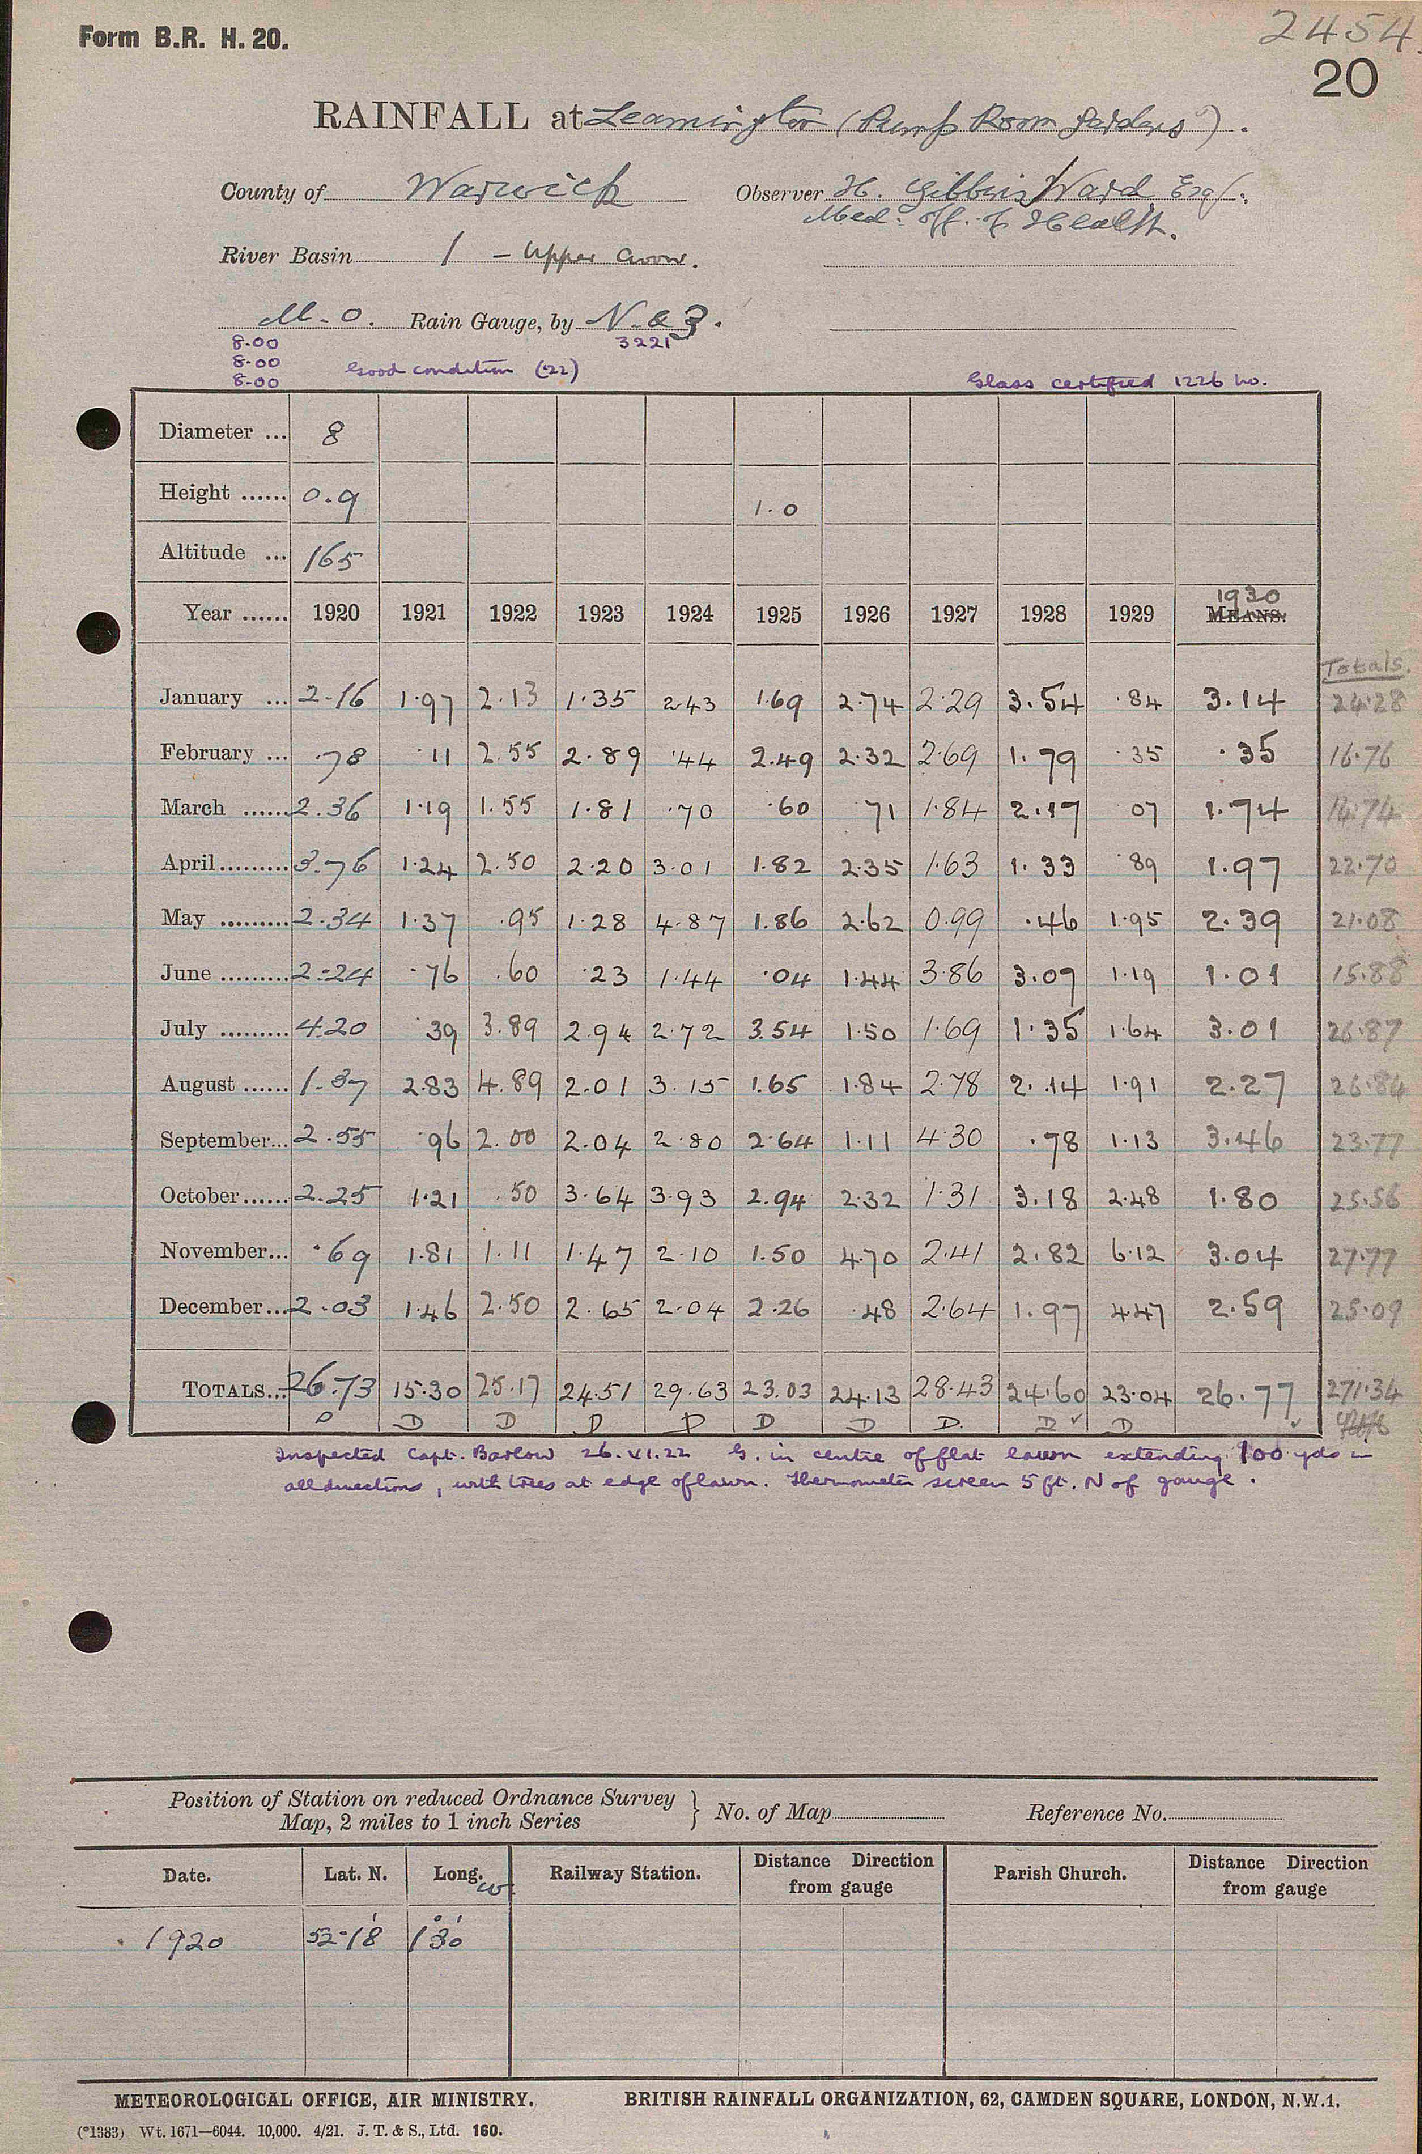 Form B.R. H. 20.
2454.
20
RAINFALL at Leamington (Pump Room Gardens).
County of Warwick Observer H. Gibbins Ward Esq.
Med. Off. of Health.
River Basin 1 - Upper Avon.
M.O. Rain Gauge, by N. & Z.
8.00 3221
8.00 Good condition (22)
8.00 Glass certified 1226 ho.
Diameter ... 8
Height ...... 0.9 1.0
Altitude ... 165
1930
Year ...... 1920 1921 1922 1923 1924 1925 1926 1927 1928 1929 MEANS.
Totals.
January ... 2.16 1.97 2.13 1.35 2.43 1.69 2.74 2.29 3.54 .84 3.14 24.28
February ... .78 .11 2.55 2.89 .44 2.49 2.32 2.69 1.79 .35 .35 16.76
March ...... 2.36 1.19 1.55 1.81 .70 .60 .71 1.84 2.17 07 1.74 14.74
April ......... 3.76 1.24 2.50 2.20 3.01 1.82 2.35 1.63 1.33 .89 1.97 22.70
May ......... 2.34 1.37 .95 1.28 4.87 1.86 2.62 0.99 .46 1.95 2.39 21.08
June ......... 2.24 .76 .60 .23 1.44 .04 1.44 3.86 3.07 1.19 1.01 15.88
July ......... 4.20 .39 3.89 2.94 2.72 3.54 1.50 1.69 1.35 1.64 3.01 26.87
August ...... 1.37 2.83 4.89 2.01 3.15 1.65 1.84 2.78 2.14 1.91 2.27 26.84
September... 2.55 .96 2.00 2.04 2.80 2.64 1.11 4.30 .78 1.13 3.46 23.77
October...... 2.25 1.21 .50 3.64 3.93 2.94 2.32 1.31 3.18 2.48 1.80 25.56
November... .69 1.81 1.11 1.47 2.10 1.50 4.70 2.41 2.82 6.12 3.04 27.77
December... 2.03 1.46 2.50 2.65 2.04 2.26 .48 2.64 1.97 4.47 2.59 25.09
TOTALS... 26.73 15.30 25.17 24.51 29.63 23.03 24.13 28.43 24.60 23.04 26.77 271.34
D D D D D D D D. D ✓ D ✓
Inspected Capt. Barlow 26.VI.22 G. in centre of flat lawn extending 100 yds in
all directions, with trees at edge of lawn. Thermometer screen 5 ft. N of gauge.
Position of Station on reduced Ordnance Survey
Map, 2 miles to 1 inch Series } No. of Map Reference No.
Date. Lat. N. Long. W. Railway Station. Distance Direction from gauge Parish Church. Distance Direction from gauge
1920 52°18' 1°30'
METEOROLOGICAL OFFICE, AIR MINISTRY. BRITISH RAINFALL ORGANIZATION, 62, CAMDEN SQUARE, LONDON, N.W.1.
(*1383) Wt. 1671—6044. 10,000. 4/21. J. T. & S., Ltd. 160.